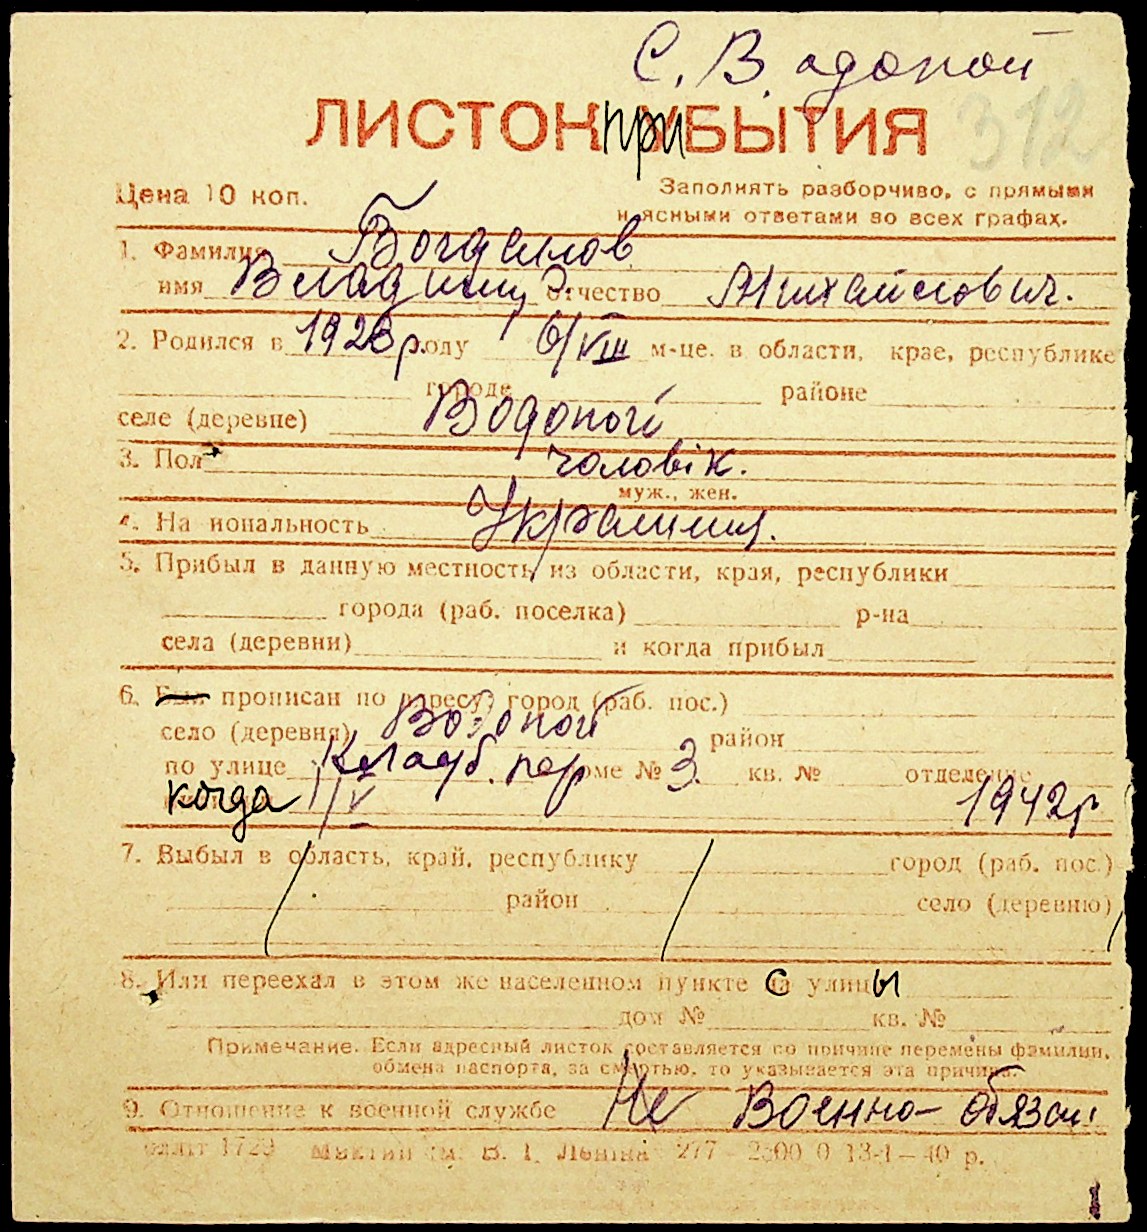 С. Водопой
312
ЛИСТОК ПРИБЫТИЯ
Цена 10 коп.
Заполнять разборчиво, с прямыми
и ясными ответами во всех графах.
1. Фамилия Богданов
имя Владимир Отчество Михайлович.
2. Родился в 1923 р. году 6/VIII м-це. в области, крае, республике
городе районе
селе (деревне) Водопой
3. Пол чоловік.
муж., жен.
4. На иональность Украинец.
5. Прибыл в данную местность из области, края, республики
города (раб. поселка) р-на
села (деревни) и когда прибыл
6. Был прописан по адресу: город (раб. пос.)
село (деревня) Водопой район
по улице Кладб. пер доме № 3. кв. № отделение
когда 1/V 1942 р
7. Выбыл в область, край, республику город (раб. пос.)
район село (деревню)
8. Или переехал в этом же населенном пункте с улицы
дом № кв. №
Примечание. Если адресный листок составляется по причине перемены фамилии,
обмена паспорта, за смертью, то указывается эта причина.
9. Отношение к военной службе Не Военно-обязан
1729 В. І. Леніна 277 2500 0 13-1—40 р.